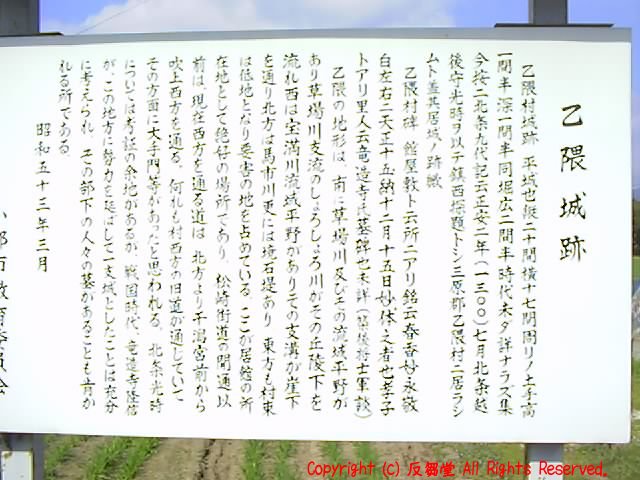 乙隈城跡
乙隈村城跡 平城也縦二十間横十七間周リノ土手高
一間半深一間半同堀広二間半時代未ダ詳ナラズ集
今按ニ北条九代記云正安二年(一三〇〇)七月北条越
後守光時ヲ以テ鎮西探題トシ三原郡乙隈村ニ居ラシ
ムト蓋其居城ノ跡歟
乙隈村碑 館屋敷ト云所ニアリ銘云春香妙永敬
白左右ニ天正十五納十二月十五日妙体之者也孝子
トアリ里人云竜造寺氏墓碑也未詳(筑後将士軍談)
乙隈の地形は、南に草場川及びその流域平野が
あり草場川支流のしょろしょろ川がその丘陵下を
流れ西は宝満川流域平野がありその支溝が崖下
を通り北方は馬市川更には境石堤あり 東方も村東
は低地となり要害の地を占めている。ここが居館の所
在地として絶好の場所であり、松崎街道の開通以
前は、現在西方を通る道は 北方より干潟宮前から
吹上西方を通る。何れも村西方の旧道が通していて
その方面に大手門等があったと思われる。北条光時
については考証の余地があるが、戦国時代、竜造寺隆信
が、この地方に勢力を延ばして一支城としたことは充分
に考えられ その部下の人々の墓があることも肯か
れる所である
昭和五十三年三月
小郡市教育委員会
Copyright (c) 反芻堂 All Rights Reserved.